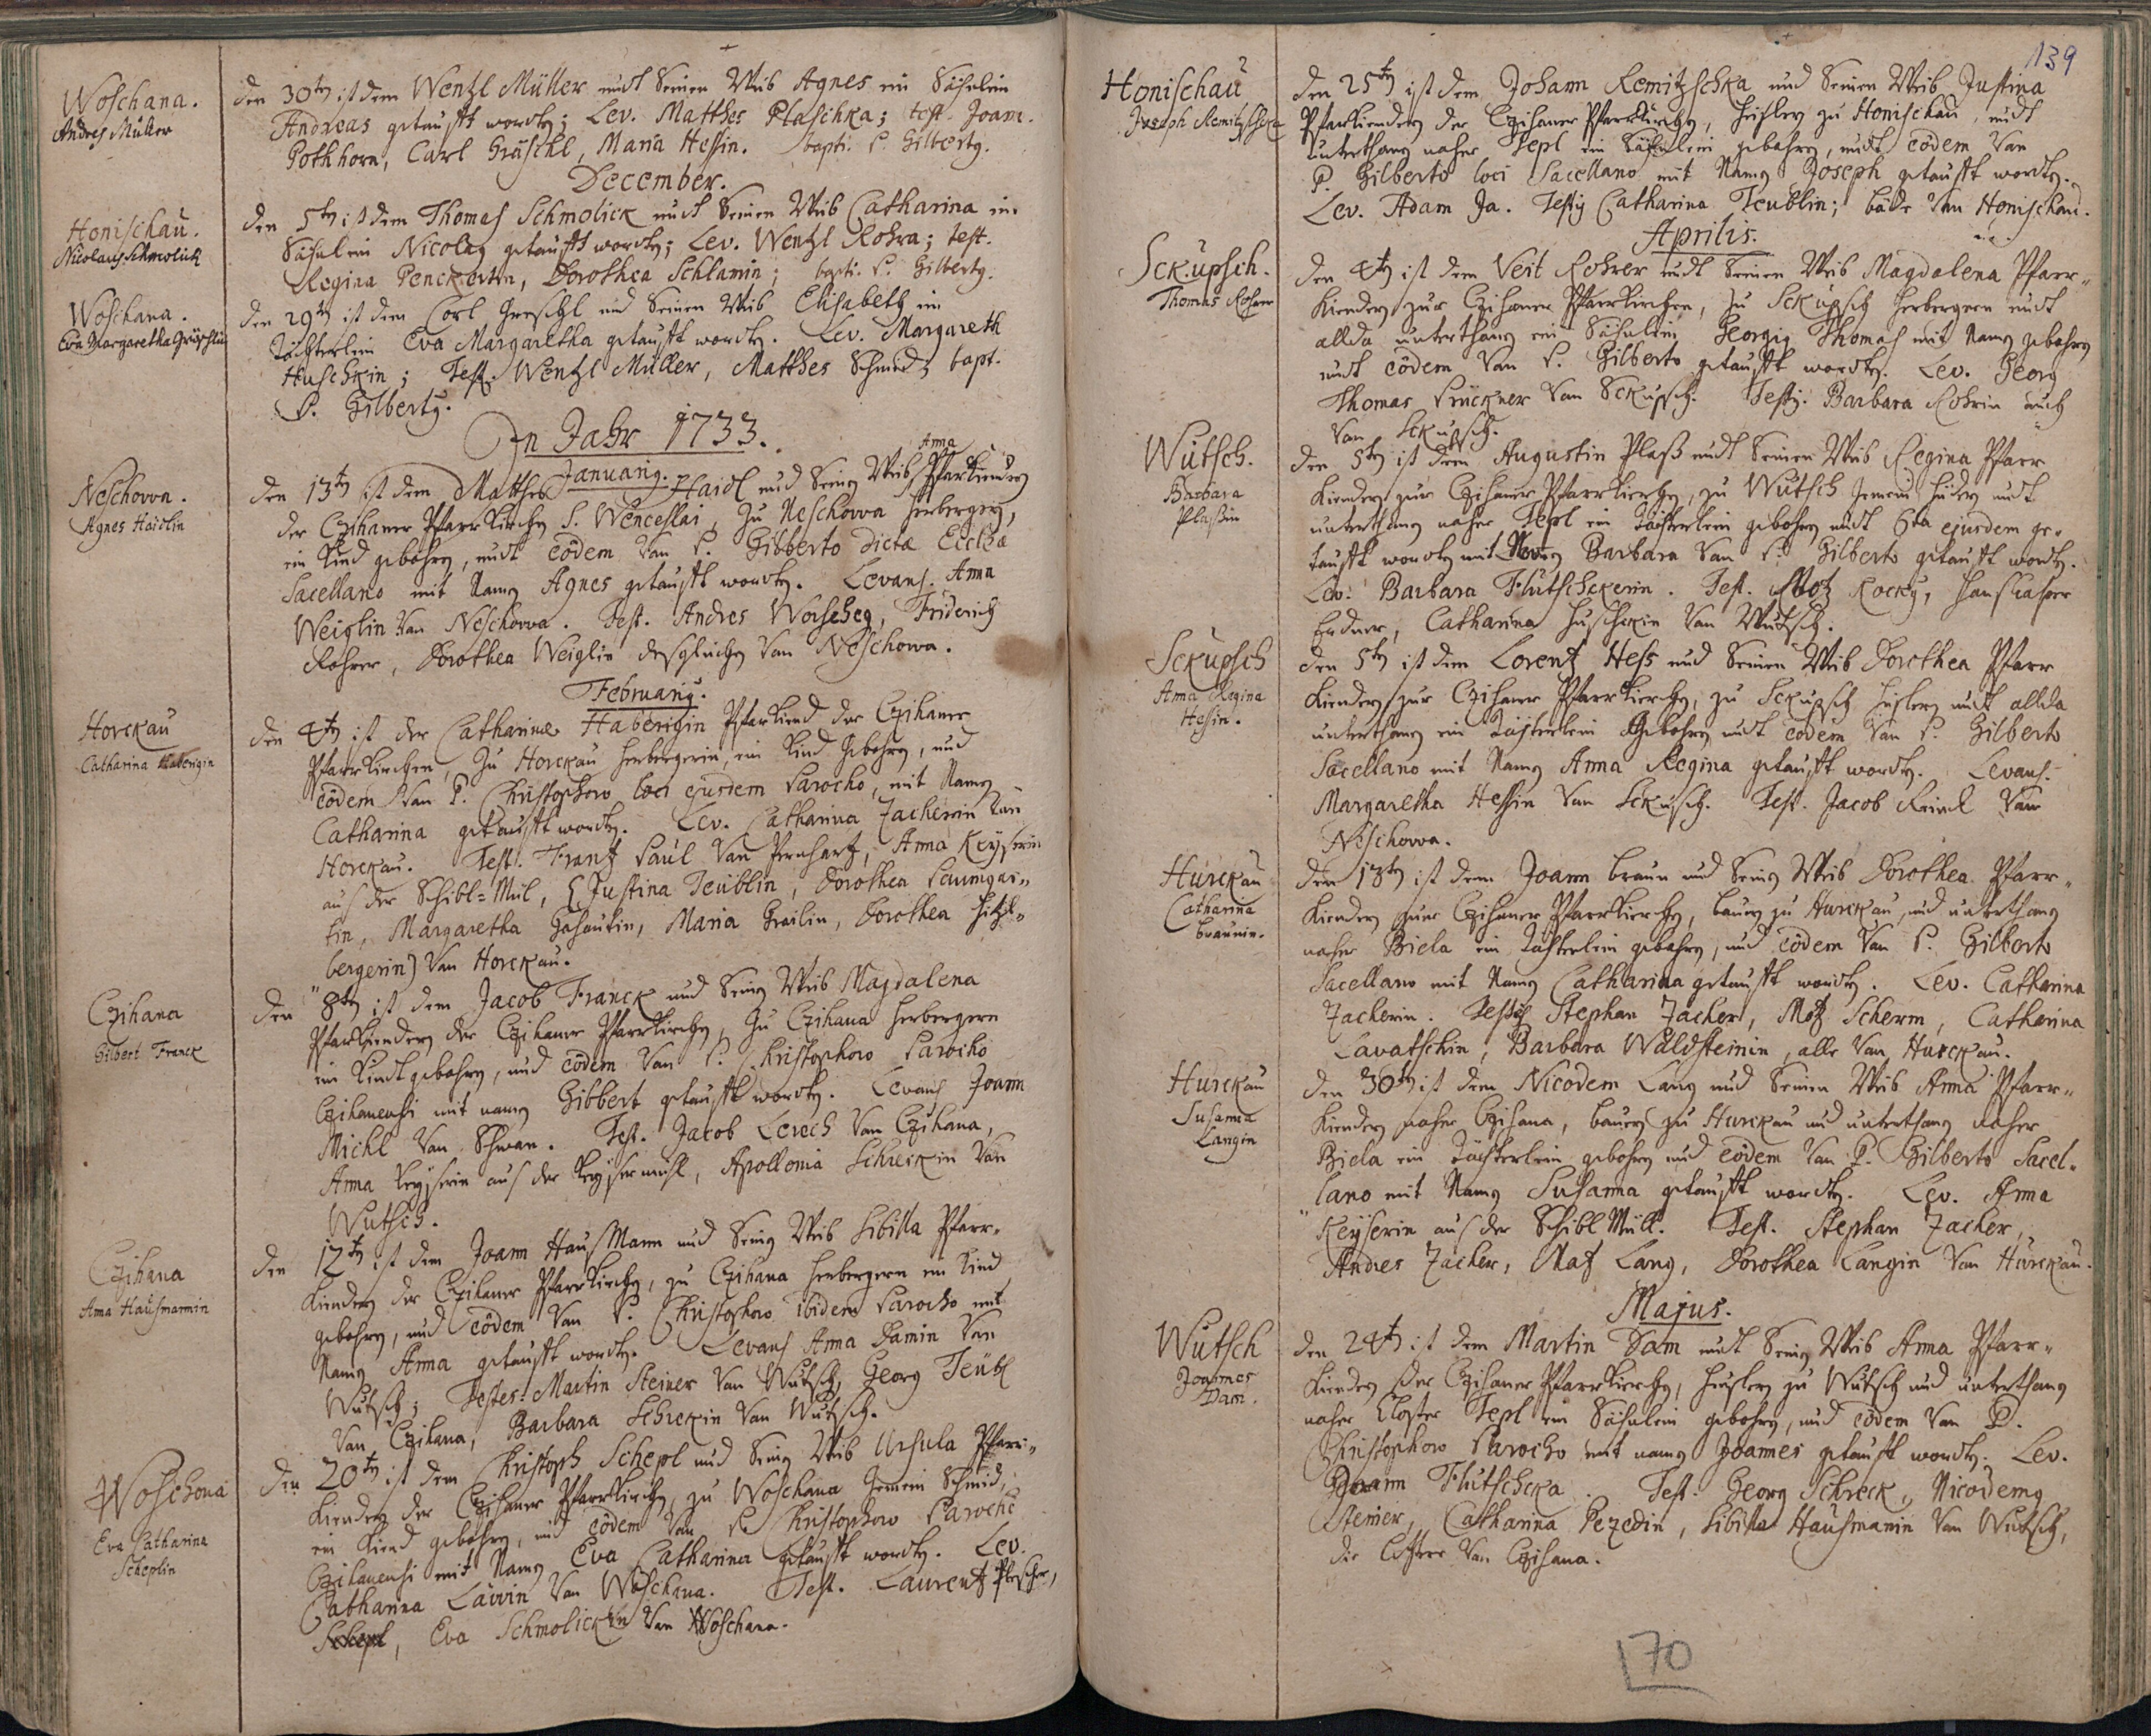 Woschana.
Andres Müller
den 30tn ist dem Wenzl Müller undt Seinen Weib Agnes ein Söhnlein
Andreas getaufft worden; Lev. Matthes Plaschka; test. Joan.
Pothhorn, Carl Gräschl, Maria Hessin. bapti. P. Gilberty.
December.
Honischau.
Nicolaus Schmolick
den 5tn ist dem Thomas Schmolick undt Seinen Weib Catharina ein
Söhnlein Nicolay getaufft worden; Lev. Wentzl Rohra; test.
Regina Penckertin, Dorothea Schlamin; bapti. P. Gilberty.
Woschana.
Eva Margaretha Gräschlin
den 29tn ist dem Carl Greschl und Seinen Weib Elisabeth ein
Töchterlein Eva Margaretha getaufft worden. Lev. Margareth
Huschkin; Test. Wentzl Müller, Matthes Schmidt, bapt.
P. Gilberty.
In Jahr 1733.
Januarij.
Neschowa.
Agnes Haidlin
den 13tn ist dem Matthes Haidl und Seing Weib Anna Pfarkiendern
der Czihaner Pfarrkirchen S. Wenceslai, zu Neschowa Herbergern,
ein Kind gebohren, undt eodem Van P. Gibberto dictae Ecclae
Sacellano mit Namen Agnes getaufft worden. Levans. Anna
Weiglin Van Neschowa. Test. Andres Worscheg, Friderich
Rohrer, Dorothea Weiglin desgleichen Van Neschowa.
Februarij.
Horckau
Catharina Haberigin
den 4tn ist der Catharinae Haberigin Pfarkiend der Czihaner
Pfarrkirchen, zu Horckau Herbergerin, ein Kind gebohren, und
eodem Van P. Christophoro loci ejusdem Parocho, mit Namen
Catharina getaufft worden. Lev. Catharina Zackerin Van
Horckau. Test. Frantz Paul Van Pernhartz, Anna Keyserin
aus der Schibl-Mül, (Justina Teüblin, Dorothea Paumgar-
tin, Margaretha Gahautin, Maria Grailin, Dorothea Hitzl-
bergerin) Van Horckau.
Czihana
Gilbert Franck
den 8tn ist dem Jacob Franck und Seing Weib Magdalena
Pfarkiendern der Czihaner Pfarrkirchen, zu Czihana Herbergern
ein Kindt gebohren, und eodem Van P. Christophoro Parocho
Czihanensi mit namen Gibbert getaufft worden. Levans Joann
Michl Van Schwan. Test. Jacob Lerech Van Czihana,
Anna Keyserin aus der Keysermühl, Apollonia Schreckin Van
Wutsch.
Czihana
Anna Hausmannin
den 12tn ist dem Joann Hausmann und Seing Weib Sibilla Pfarr-
kiendern der Czihaner Pfarrkirchen, zu Czihana Herbergern ein Kind
gebohren, und eodem Van P. Christophoro ibidem Parocho mit
Namen Anna getaufft worden. Levans Anna Damin Van
Wutsch; Testes: Martin Steiner Van Wutsch, Georg Teübl
Van Czihana, Barbara Schreckin Van Wutsch.
Woschona
Eva Catharina
Scheplin
den 20tn ist dem Christoph Schepl und Seing Weib Ursula Pfarr-
kiendern der Czihaner Pfarrkirchen, zu Woschana Gemein Schmid,
ein Kiend gebohren, und eodem Van P. Christophoro Parocho
Czihanensi mit Namen Eva Catharina getaufft worden. Lev.
Catharina Läwin Van Woschana. Test. Laurentz Plescher,
Schepl, Eva Schmolickin Van Woschana.
139
Honischau
Joseph Remitzschka
den 25tn ist dem Johann Remitzschka und Seinen Weib Justina
Pfarkiendern der Czihaner Pfarrkirchen, Heislern zu Honischau, undt
unterthanen naher Tepl ein Söhnlein gebohren, undt eodem Van
P. Gilberto loci Sacellano mit Namen Joseph getaufft worden.
Lev. Adam Ja. Testis Catharina Teublin; beide Van Honischau.
Aprilis.
Sckupsch.
Thomas Rohrer
den 4tn ist dem Veit Rohrer undt Seinen Weib Magdalena Pfarr-
kiendern zur Czihaner Pfarrkirchen, zu Sckupsch Herbergern undt
allda unterthanen ein Söhnlein Georgig Thomas mit Namen gebohren
undt eodem Van P. Gilberto getaufft worden. Lev. Georg
Thomas Prückner Van Sckupsch. Testis. Barbara Rohrin auch
Van Sckupsch.
Wutsch.
Barbara
Plaßin
den 5tn ist dem Augustin Plaß undt Seinen Weib Regina Pfarr
kiendern zur Czihaner Pfarrkirchen, zu Wutsch Gemein Hüdern undt
unterthanen naher Tepl ein Töchterlein gebohren undt 6ta ejusdem ge-
taufft worden mit Namen Barbara Van P. Gilberto getaufft worden.
Lev. Barbara Flutschckerin. Test. Motz Rocky, Hans Casper
Endner, Catharina Huschkin Van Wutsch.
Sckupsch
Anna Regina
Hessin.
den 5tn ist dem Lorentz Hess und Seinen Weib Dorothea Pfarr
kiendern zur Czihaner Pfarrkirchen, zu Sckupsch Heislern undt allda
unterthanen ein Töchterlein gebohren, undt eodem Van P. Gilberto
Sacellano mit Namen Anna Regina getaufft worden. Levans.
Margaretha Hessin Van Sckupsch. Test. Jacob Reindl Van
Neschowa.
Hurckau
Catharina
Braunin.
den 18tn ist dem Joann Braun und Seing Weib Dorothea Pfarr-
kiendern zur Czihaner Pfarrkirchen, Bauern zu Hurckau, und unterthanen
naher Biela ein Töchterlein gebohren, und eodem Van P. Gilberto
Sacellano mit Namen Catharina getaufft worden. Lev. Catharina
Zackerin. Testes Stephan Zacker, Motz Scherm, Catharina
Lavatschin, Barbara Waldsteinin, alle Van Hurckau.
Hurckau
Susanna
Langin
den 30tn ist dem Nicodem Lang und Seinen Weib Anna Pfarr-
kiendern naher Czihana, Bauern zu Hurckau und unterthanen naher
Biela ein Töchterlein gebohren und eodem Van P. Gilberto Sacel-
lano mit Namen Susanna getaufft worden. Lev. Anna
Keyserin aus der Schibl Müll. Test. Stephan Zacker,
Andres Zacker, Matz Lang, Dorothea Langin Van Hurckau.
Majus.
Wutsch
Joannes
Dam.
den 24tn ist dem Martin Dam undt Seing Weib Anna Pfarr-
kiendern der Czihaner Pfarrkirchen, Heislern zu Wutsch und unterthanen
naher Closter Tepl ein Söhnlein gebohren, und eodem Van P.
Christophoro Parocho mit namen Joannes getaufft worden. Lev.
Joann Flutschcka. Test. Georg Schreck, Nicodemg
Steiner, Catharina Pezedin, Sibilla Hausmanin Van Wutsch,
die letztere Van Czihana.
170